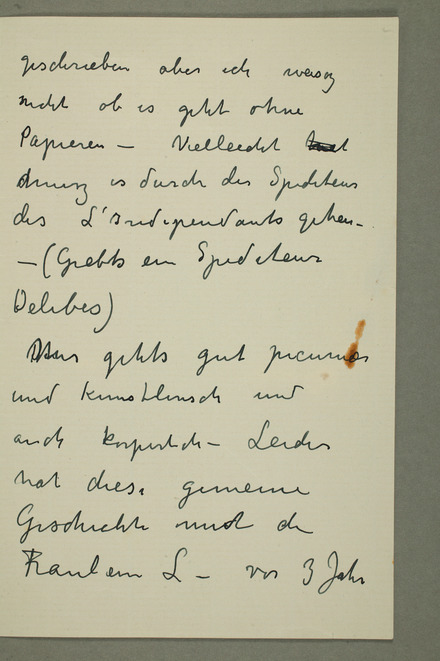 geschrieben aber ich weiss
nicht ob es geht ohne
Papieren — Vielleicht
muss es durch des Spediteurs
des L'Independants gehen.
— (Giebts ein Spediteur
Delibes)
Mir gehts gut pecuniär
und Künstlerisch und
auch körperlich — Leider
hat diese gemeine
Geschichte mit de
Fraulein L — vor 3 Jahr